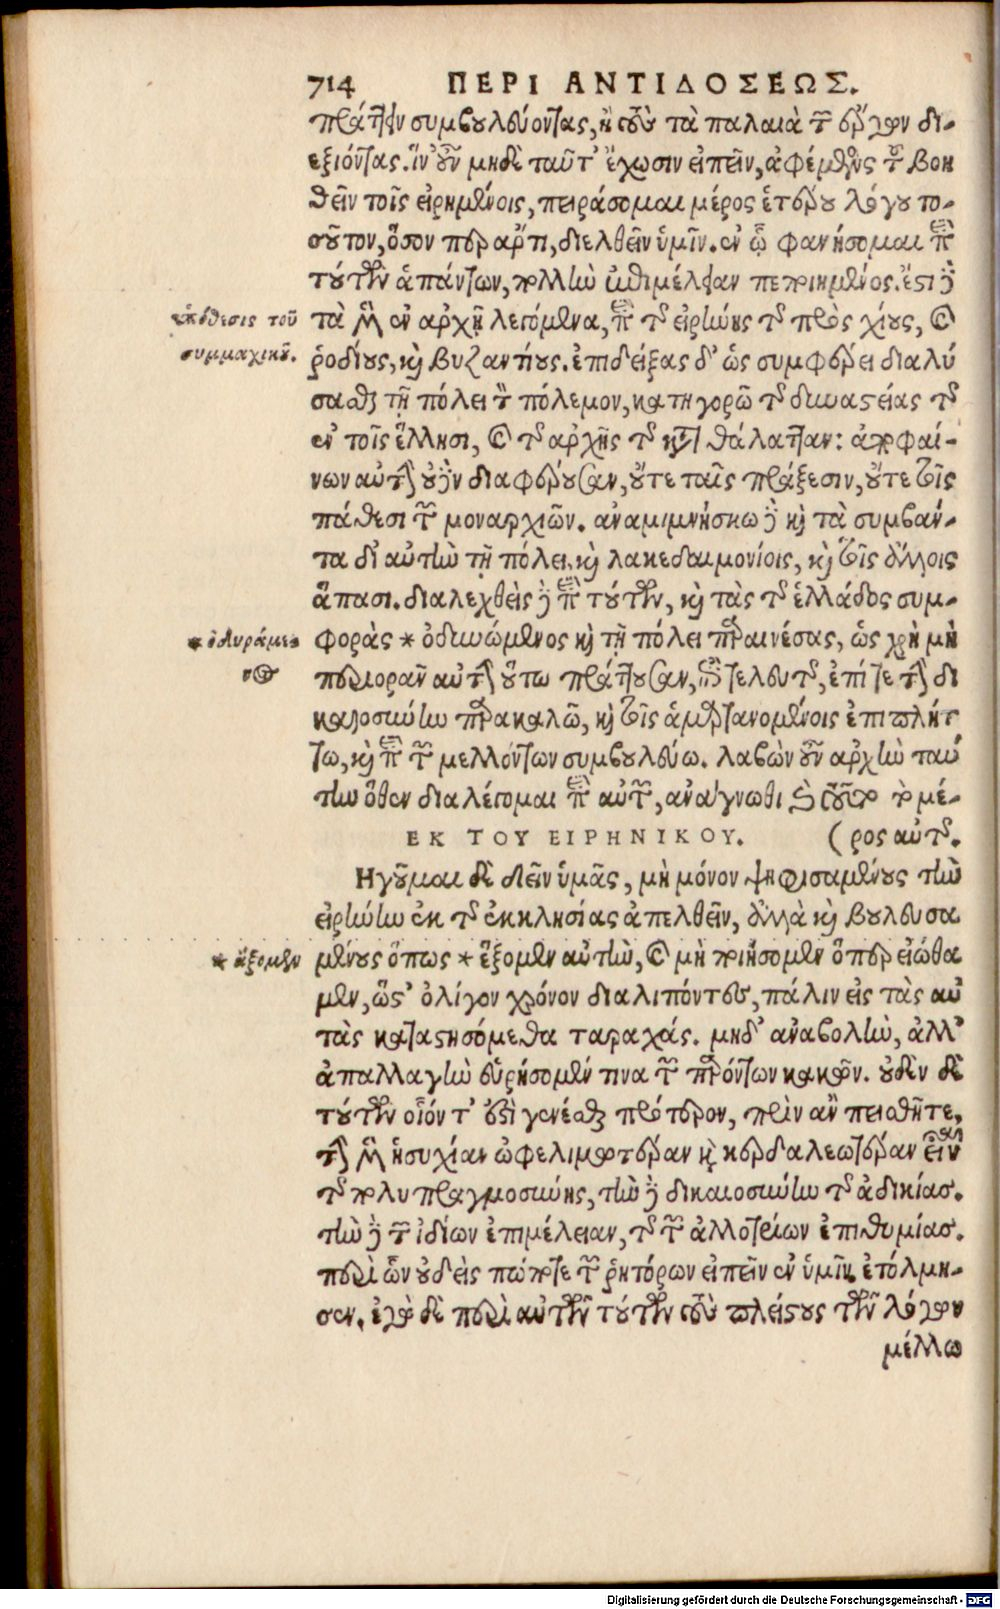 714 ΠΕΡΙ ΑΝΤΙΔΟΣΕΩΣ.
πράττειν συμβουλεύοντας, ἢ τοὺς τὰ παλαιὰ τῶν ἔργων δι-
εξιόντας. ἵν' οὖν μηδὲ ταῦτ' ἔχωσιν εἰπεῖν, ἀφέμενος τοῦ βοη
θεῖν τοῖς εἰρημένοις, πειράσομαι μέρος ἑτέρου λόγου το-
σοῦτον, ὅσον περ ἄρτι, διελθεῖν ὑμῖν. ἐν ᾧ φανήσομαι περὶ
τούτων ἁπάντων, πολλὴν ἐπιμέλειαν πεποιημένος. ἔστι δὲ
ὑπόθεσις τοῦ
συμμαχικοῦ.
τὰ μὲν ἐν ἀρχῇ λεγόμενα, περὶ τῆς εἰρήνης τῆς πρὸς χίους, καὶ
ῥοδίους, καὶ βυζαντίους. ἐπιδείξας δ' ὡς συμφέρει διαλύ
σασθαι τῇ πόλει τὸν πόλεμον, κατηγορῶ τῆς δυναστείας τῆς
ἐν τοῖς ἕλλησι, καὶ τῆς ἀρχῆς τῆς κατὰ θάλατταν: ἀποφαί-
νων αὐτὴν οὐδὲν διαφέρουσαν, οὔτε ταῖς πράξεσιν, οὔτε τοῖς
πάθεσι τῶν μοναρχιῶν. ἀναμιμνήσκω δὲ καὶ τὰ συμβάν-
τα δι' αὐτὴν τῇ πόλει, καὶ λακεδαιμονίοις, καὶ τοῖς ἄλλοις
ἅπασι. διαλεχθεὶς δὲ περὶ τούτων, καὶ τὰς τῆς ἑλλάδος συμ-
* ὀδυράμε
νος
φορὰς * ὀδυνώμενος καὶ τῇ πόλει παραινέσας, ὡς χρὴ μὴ
περιορᾶν αὐτὴν οὕτω πράττουσαν, ἐπὶ τελευτῆς, ἐπί τε τὴν δι
καιοσύνην παρακαλῶ, καὶ τοῖς ἁμαρτανομένοις ἐπιπλήτ
τω, καὶ περὶ τῶν μελλόντων συμβουλεύω. λαβὼν οὖν ἀρχὴν ταύ
την ὅθεν διαλέγομαι περὶ αὐτῶν, ἀνάγνωθι καὶ τοῦτο τὸ μέ-
ΕΚ ΤΟΥ ΕΙΡΗΝΙΚΟΥ. (ρος αὐτοῖς.
Ἡγοῦμαι δὲ δεῖν ὑμᾶς, μὴ μόνον ψηφισαμένους τὴν
εἰρήνην ἐκ τῆς ἐκκλησίας ἀπελθεῖν, ἀλλὰ καὶ βουλευσα
* ἄξομεν
μένους ὅπως * ἕξομεν αὐτὴν, καὶ μὴ ποιήσομεν ὅπερ εἰώθα
μεν, ὥστ' ὀλίγον χρόνον διαλιπόντες, πάλιν εἰς τὰς αὐ
τὰς καταστησόμεθα ταραχάς. μηδ' ἀναβολὴν, ἀλλ'
ἀπαλλαγὴν εὑρήσομέν τινα τῶν παρόντων κακῶν. οὐδὲν δὲ
τούτων οἷόν τ' ἐστὶ γενέσθαι πρότερον, πρὶν ἂν πεισθῆτε,
τὴν μὲν ἡσυχίαν ὠφελιμωτέραν καὶ κερδαλεωτέραν εἶναι
τῆς πολυπραγμοσύνης, τὴν δὲ δικαιοσύνην τῆς ἀδικίας.
τὴν δὲ τῶν ἰδίων ἐπιμέλειαν, τῆς τῶν ἀλλοτρίων ἐπιθυμίας.
περὶ ὧν οὐδεὶς πώποτε τῶν ῥητόρων εἰπεῖν ἐν ὑμῖν ἐτόλμη-
σεν. ἐγὼ δὲ περὶ αὐτῶν τούτων τοὺς πλείστους τῶν λόγων
μέλλω
Digitalisierung gefördert durch die Deutsche Forschungsgemeinschaft - DFG